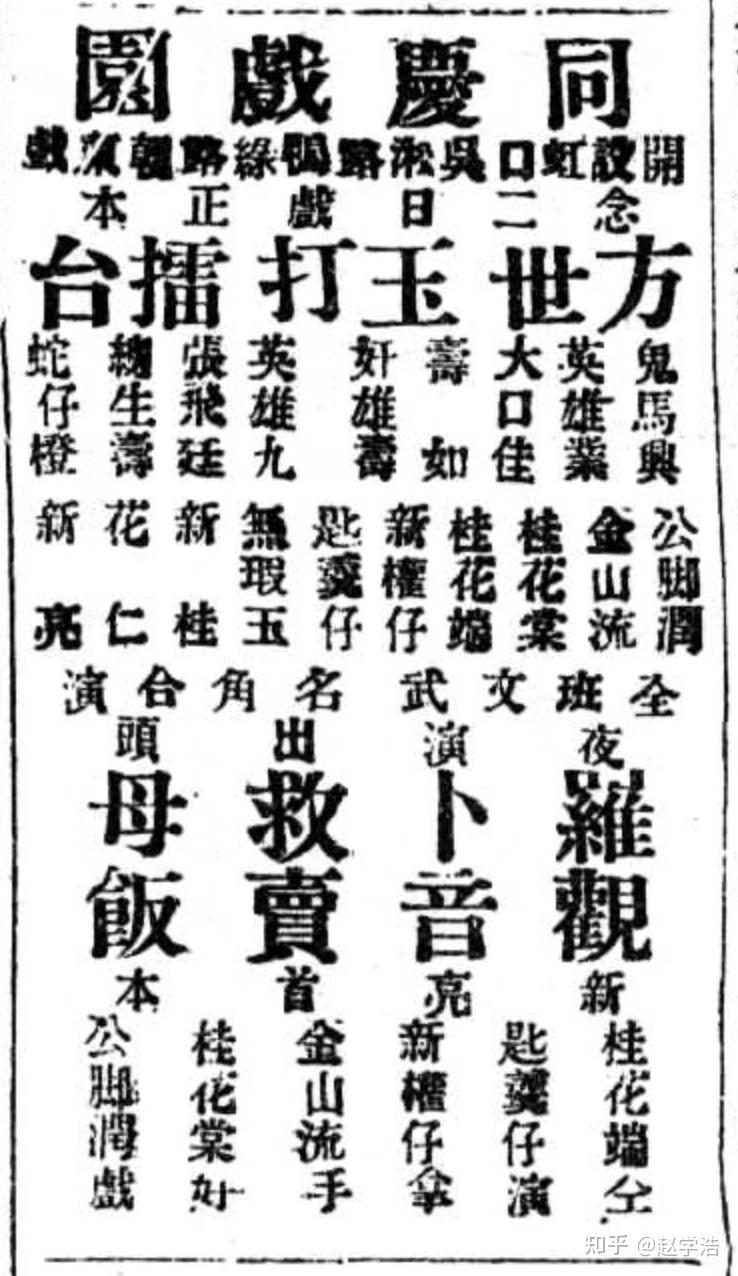 同慶戲園
開設虹口吳淞路鴨綠路戲
念二日戲正本
方世玉打擂台
鬼馬興
英雄業
大口佳
壽如
奸雄壽
英雄九
張飛廷
生壽
蛇仔橙
公脚潤
金山流
桂花棠
桂花端
新權仔
匙羹仔
無瑕玉
新桂
花仁
新亮
全班文武名角合演
夜演出頭
羅卜救母
觀音賣飯
新亮首本
桂花端
匙羹仔
新權仔
金山流
桂花棠
公脚潤
仝演拿手好戲
知乎 @赵学浩